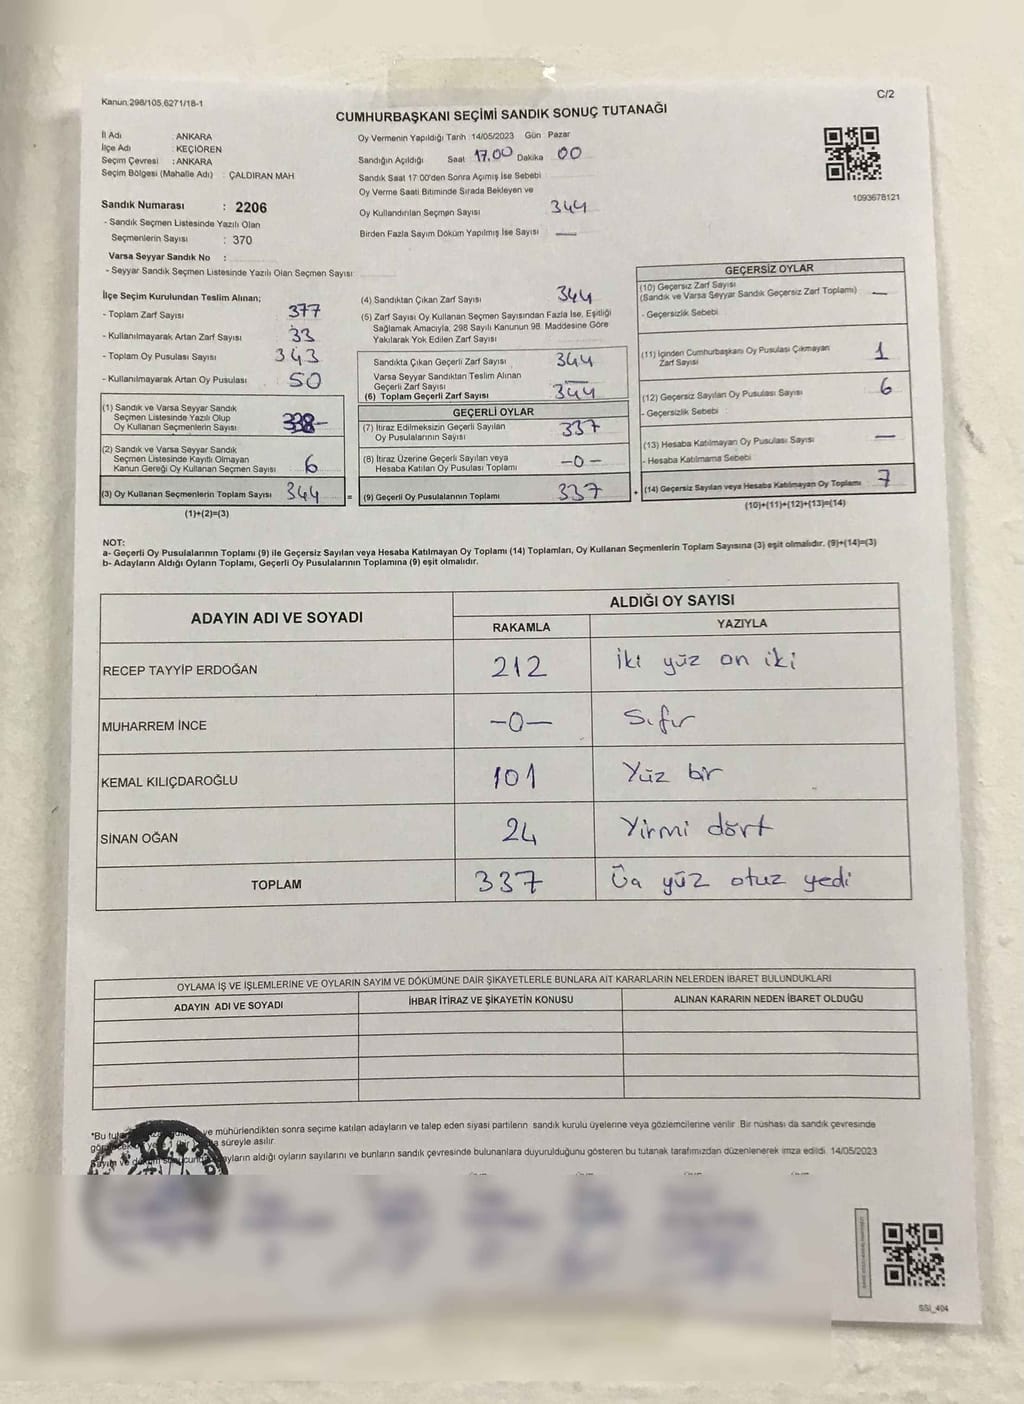 Kanun.298/105,6271/18-1
C/2
CUMHURBAŞKANI SEÇİMİ SANDIK SONUÇ TUTANAĞI
İl Adı ANKARA
İlçe Adı : KEÇİÖREN
Seçim Çevresi : ANKARA
Seçim Bölgesi (Mahalle Adı) : ÇALDIRAN MAH
Sandık Numarası : 2206
- Sandık Seçmen Listesinde Yazılı Olan
Seçmenlerin Sayısı : 370
Varsa Seyyar Sandık No :
- Seyyar Sandık Seçmen Listesinde Yazılı Olan Seçmen Sayısı
Oy Vermenin Yapıldığı Tarih 14/05/2023 Gün Pazar
Sandığın Açıldığı Saat 17.00 Dakika 00
Sandık Saat 17:00'den Sonra Açımış İse Sebebi
Oy Verme Saati Bitiminde Sırada Bekleyen ve
Oy Kullandırılan Seçmen Sayısı 344
Birden Fazla Sayım Döküm Yapılmış İse Sayısı —
1093678121
İlçe Seçim Kurulundan Teslim Alınan;
- Toplam Zarf Sayısı 377
- Kullanılmayarak Artan Zarf Sayısı 33
- Toplam Oy Pusulası Sayısı 343
- Kullanılmayarak Artan Oy Pusulası 50
(1) Sandık ve Varsa Seyyar Sandık
Seçmen Listesinde Yazılı Olup
Oy Kullanan Seçmenlerin Sayısı 338-
(2) Sandık ve Varsa Seyyar Sandık
Seçmen Listesinde Kayıtlı Olmayan
Kanun Gereği Oy Kullanan Seçmen Sayısı 6
(3) Oy Kullanan Seçmenlerin Toplam Sayısı 344 =
(1)+(2)=(3)
(4) Sandıktan Çıkan Zarf Sayısı 344
(5) Zarf Sayısı Oy Kullanan Seçmen Sayısından Fazla İse, Eşitliği
Sağlamak Amacıyla, 298 Sayılı Kanunun 98. Maddesine Göre
Yakılarak Yok Edilen Zarf Sayısı
Sandıkta Çıkan Geçerli Zarf Sayısı 344
Varsa Seyyar Sandıktan Teslim Alınan
Geçerli Zarf Sayısı —
(6) Toplam Geçerli Zarf Sayısı 344
GEÇERLİ OYLAR
(7) İtiraz Edilmeksizin Geçerli Sayılan
Oy Pusulalarının Sayısı 337
(8) İtiraz Üzerine Geçerli Sayılan veya
Hesaba Katılan Oy Pusulası Toplamı -0-
(9) Geçerli Oy Pusulalarının Toplamı 337 +
GEÇERSİZ OYLAR
(10) Geçersiz Zarf Sayısı
(Sandık ve Varsa Seyyar Sandık Geçersiz Zarf Toplamı) —
- Geçersizlik Sebebi
(11) İçinden Cumhurbaşkanı Oy Pusulası Çıkmayan
Zarf Sayısı 1
(12) Geçersiz Sayılan Oy Pusulası Sayısı 6
- Geçersizlik Sebebi
(13) Hesaba Katılmayan Oy Pusulası Sayısı —
- Hesaba Katılmama Sebebi
(14) Geçersiz Sayılan veya Hesaba Katılmayan Oy Toplamı 7
(10)+(11)+(12)+(13)=(14)
NOT:
a- Geçerli Oy Pusulalarının Toplamı (9) ile Geçersiz Sayılan veya Hesaba Katılmayan Oy Toplamı (14) Toplamları, Oy Kullanan Seçmenlerin Toplam Sayısına (3) eşit olmalıdır. (9)+(14)=(3)
b- Adayların Aldığı Oyların Toplamı, Geçerli Oy Pusulalarının Toplamına (9) eşit olmalıdır.
ADAYIN ADI VE SOYADI
ALDIĞI OY SAYISI
RAKAMLA YAZIYLA
RECEP TAYYİP ERDOĞAN 212 iki yüz on iki
MUHARREM İNCE -0- Sıfır
KEMAL KILIÇDAROĞLU 101 Yüz bir
SİNAN OĞAN 24 Yirmi dört
TOPLAM 337 yüz otuz yedi
OYLAMA İŞ VE İŞLEMLERİNE VE OYLARIN SAYIM VE DÖKÜMÜNE DAİR ŞİKAYETLERLE BUNLARA AİT KARARLARIN NELERDEN İBARET BULUNDUKLARI
ADAYIN ADI VE SOYADI İHBAR İTİRAZ VE ŞİKAYETİN KONUSU ALINAN KARARIN NEDEN İBARET OLDUĞU
*Bu ve mühürlendikten sonra seçime katılan adayların ve talep eden siyasi partilerin sandık kurulu üyelerine veya gözlemcilerine verilir. Bir nüshası da sandık çevresinde
süreyle asılır.
aldığı oyların sayılarını ve bunların sandık çevresinde bulunanlara duyurulduğunu gösteren bu tutanak tarafımızdan düzenlenerek imza edildi. 14/05/2023
SSI_404